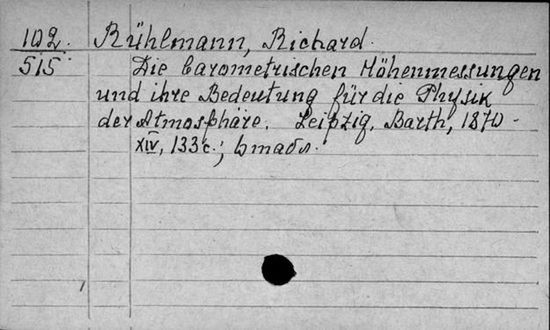 102. Rühlmann, Richard.
515 Die barometrischen Höhenmessungen
und ihre Bedeutung für die Physik
der Atmosphäre. Leipzig, Barth, 1870 -
XIV, 133 c.;